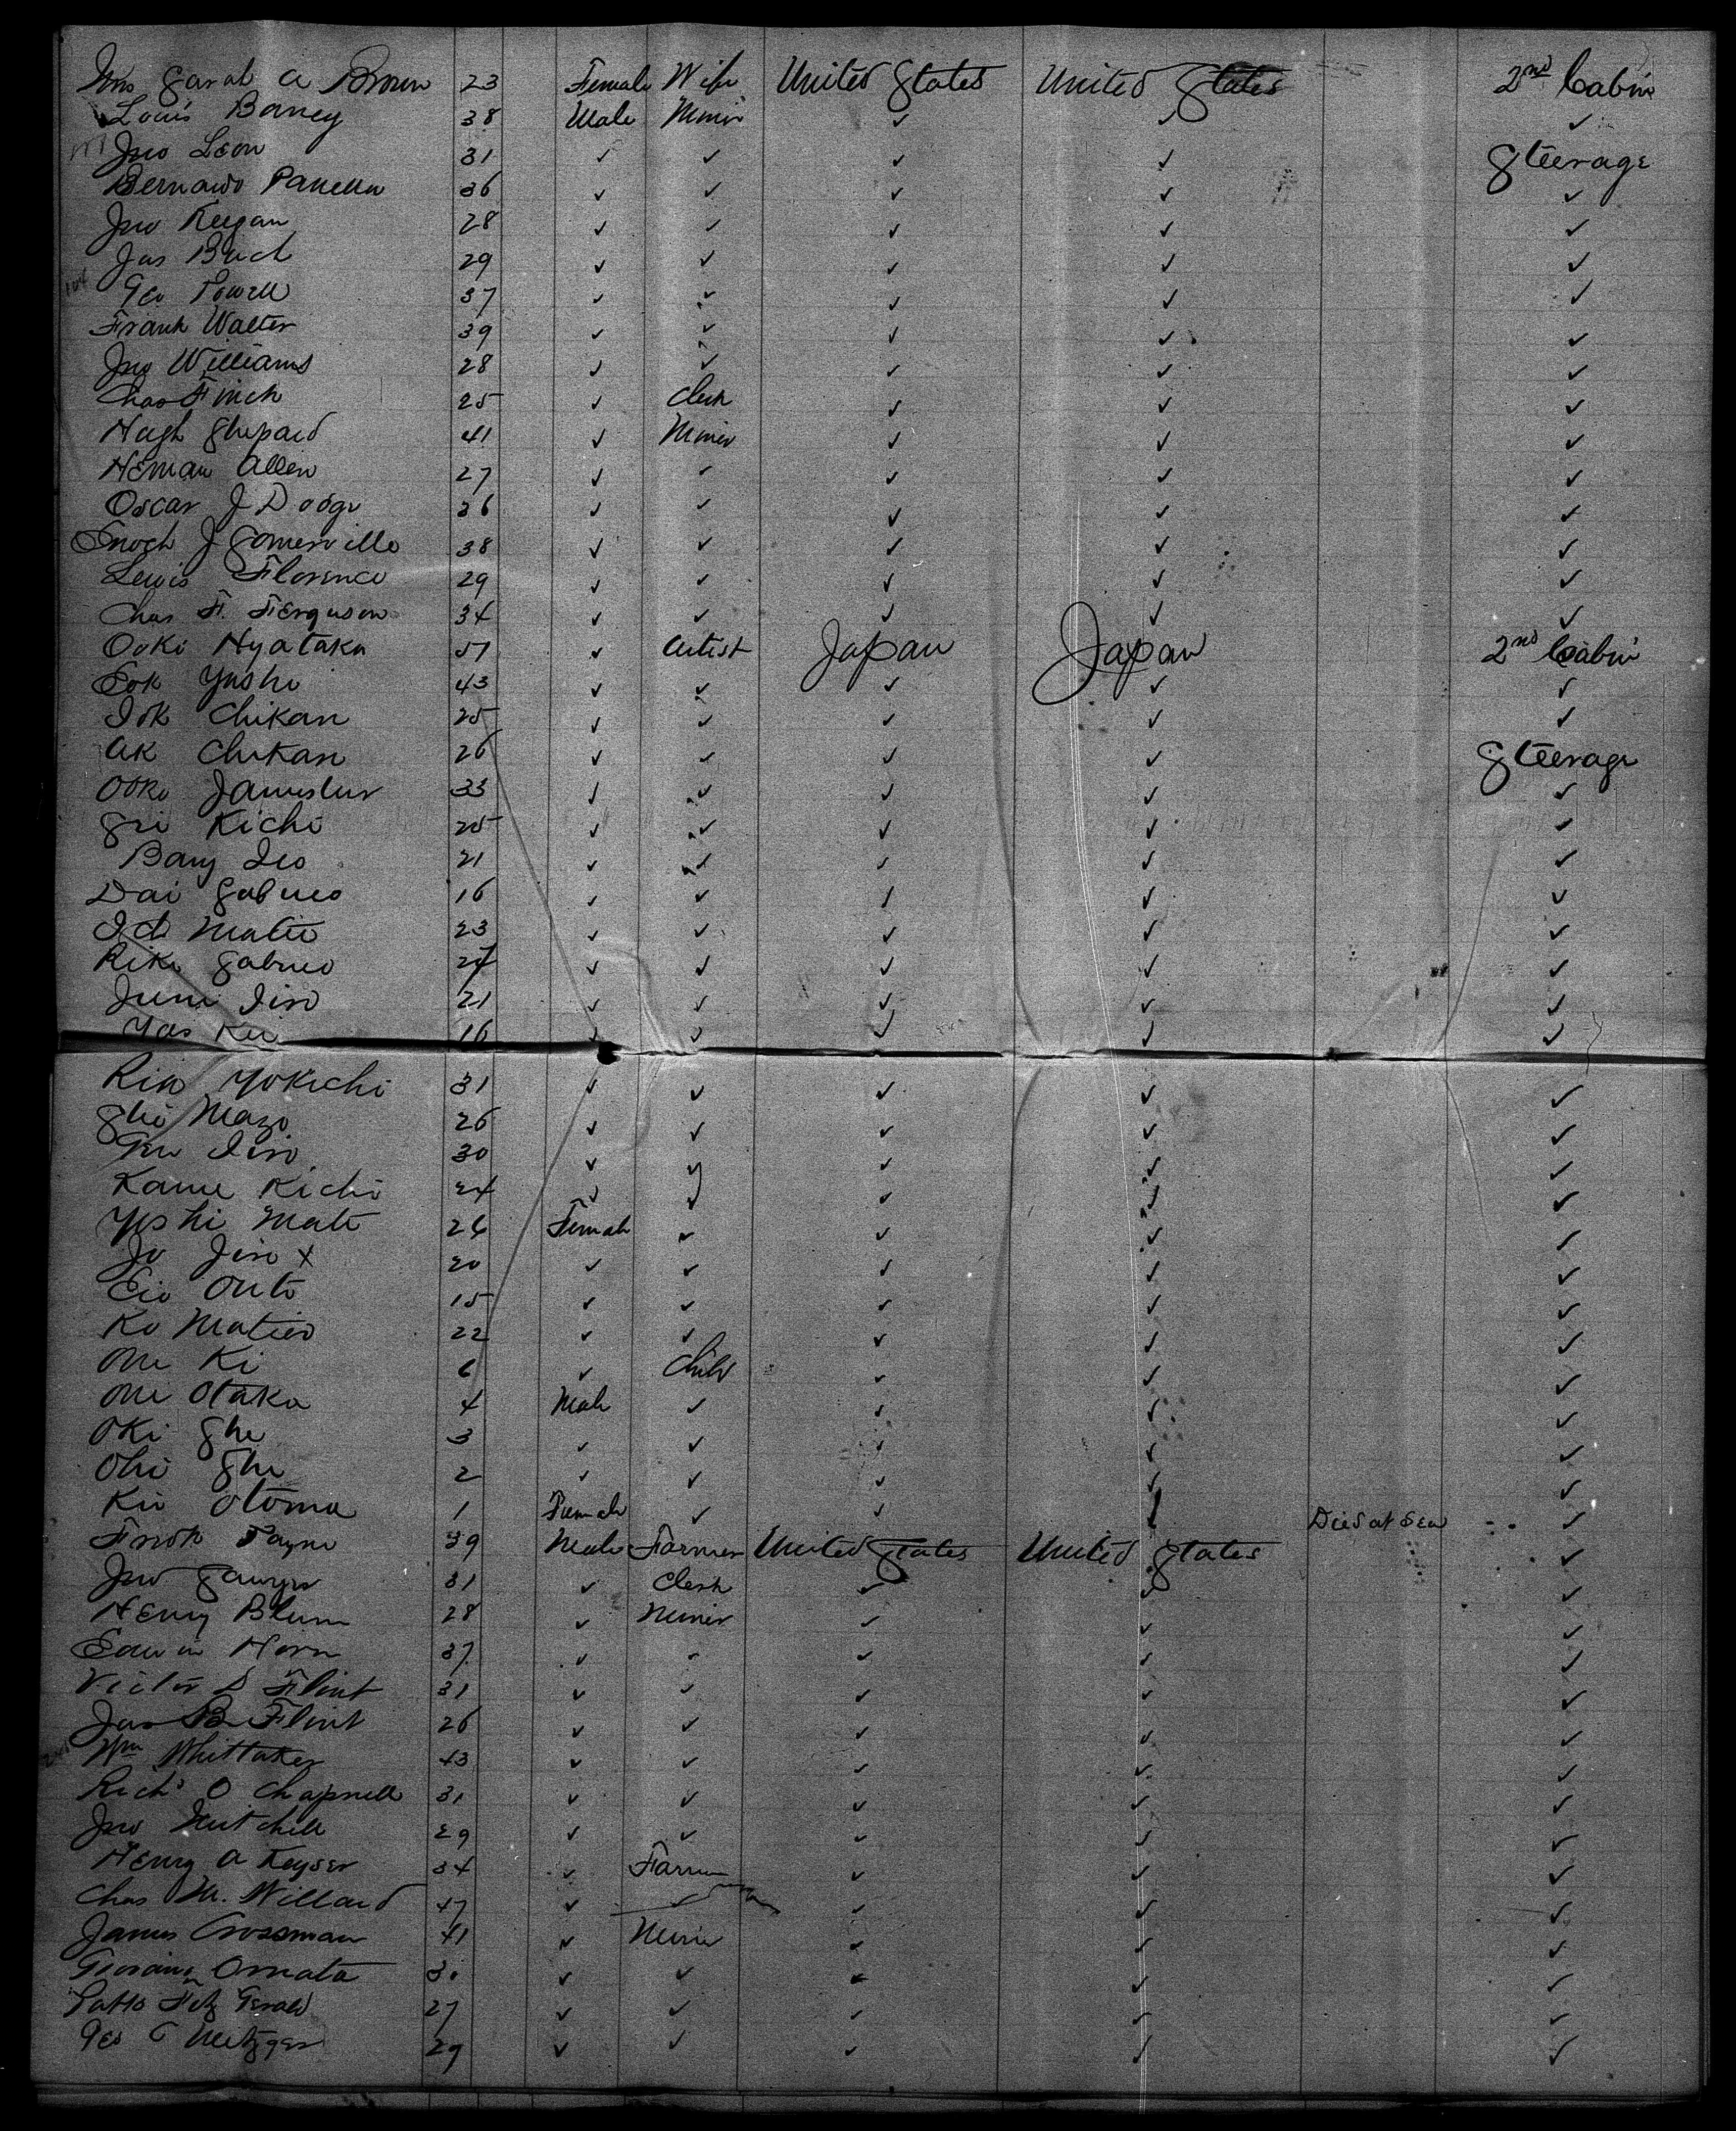 Mrs Sarah A Brown 23 Female Wife United States United States 2nd Cabin
Louis Barney 38 Male Miner ✓ ✓ ✓
Jno Leon 31 ✓ ✓ ✓ ✓ Steerage
Bernardo 36 ✓ ✓ ✓ ✓ ✓
Jno Keegan 28 ✓ ✓ ✓ ✓ ✓
Jas 29 ✓ ✓ ✓ ✓ ✓
Geo Powell 37 ✓ ✓ ✓ ✓ ✓
Frank Walter 39 ✓ ✓ ✓ ✓ ✓
Jno Williams 28 ✓ ✓ ✓ ✓ ✓
Chas Finch 25 ✓ Clerk ✓ ✓ ✓
Hugh Shepard 41 ✓ Miner ✓ ✓ ✓
Heman Allen 27 ✓ ✓ ✓ ✓ ✓
Oscar J Dodge 36 ✓ ✓ ✓ ✓ ✓
Enoch J Somerville 38 ✓ ✓ ✓ ✓ ✓
Lewis Florence 29 ✓ ✓ ✓ ✓ ✓
Chas F. Ferguson 34 ✓ ✓ ✓ ✓ ✓
Ooki Hyataka 51 ✓ Artist Japan Japan 2nd Cabin
Sok Yoshi 43 ✓ ✓ ✓ ✓ ✓
Iok Chikan 25 ✓ ✓ ✓ ✓ ✓
Ak Chikan 26 ✓ ✓ ✓ ✓ Steerage
Ooki 33 ✓ ✓ ✓ ✓ ✓
Sri Kichi 25 ✓ ✓ ✓ ✓ ✓
21 ✓ ✓ ✓ ✓ ✓
Dai 16 ✓ ✓ ✓ ✓ ✓
23 ✓ ✓ ✓ ✓ ✓
Riki ✓ ✓ ✓ ✓ ✓
21 ✓ ✓ ✓ ✓ ✓
16 ✓ ✓ ✓ ✓ ✓
Rin Yokichi 31 ✓ ✓ ✓ ✓ ✓
Sho Mazo 26 ✓ ✓ ✓ ✓ ✓
30 ✓ ✓ ✓ ✓ ✓
Kame Kichi 24 ✓ ✓ ✓ ✓ ✓
Yoshi Mate 26 Female ✓ ✓ ✓ ✓
Jo Jiro x 20 ✓ ✓ ✓ ✓ ✓
15 ✓ ✓ ✓ ✓ ✓
Ko 22 ✓ ✓ ✓ ✓ ✓
Ome Ki 6 ✓ Child ✓ ✓ ✓
Ome Otaka 4 Male ✓ ✓ ✓ ✓
Oki She 3 ✓ ✓ ✓ ✓ ✓
She 2 ✓ ✓ ✓ ✓ ✓
Otoma 1 Female ✓ ✓ Died at Sea ✓
Fredk Payne 39 Male Farmer United States United States ✓
Jno Sawyer 31 ✓ Clerk ✓ ✓ ✓
Henry Blum 28 ✓ Miner ✓ ✓ ✓
Edwin Horn 37 ✓ ✓ ✓ ✓ ✓
Victor D Flint 31 ✓ ✓ ✓ ✓ ✓
Jas B Flint 26 ✓ ✓ ✓ ✓ ✓
Wm Whittaker 43 ✓ ✓ ✓ ✓ ✓
Richd O Chapnell 31 ✓ ✓ ✓ ✓ ✓
Jno Mitchell 29 ✓ ✓ ✓ ✓ ✓
Henry A Keyser 34 ✓ Farmer ✓ ✓ ✓
Chas M. Willard 47 ✓ ✓ ✓ ✓ ✓
James Crossman 41 ✓ Miner ✓ ✓ ✓
Ornata ✓ ✓ ✓ ✓ ✓
Fitz Gerald 27 ✓ ✓ ✓ ✓ ✓
Geo C Metzger 29 ✓ ✓ ✓ ✓ ✓